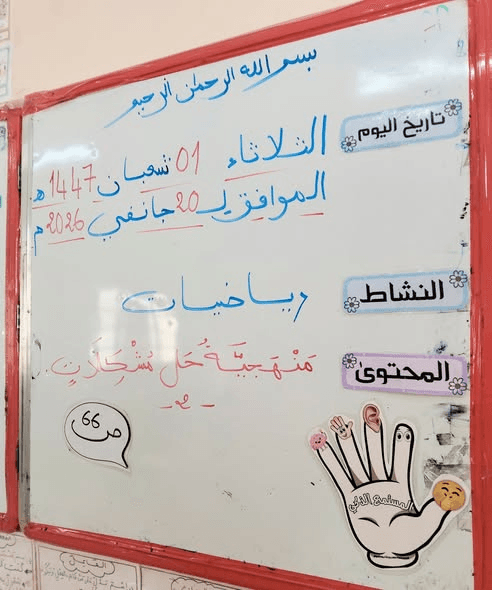 بسم الله الرحمان الرحيم
تاريخ اليوم
الثلاثاء 01 شعبان 1447 هـ
الموافق لـ 20 جانفي 2026 م
النشاط
رياضيات
المحتوى
مَنْهَجِيَّةُ حَل مُشْكِلَاتٍ
- 2 -
ص 66
المستمع الذكي